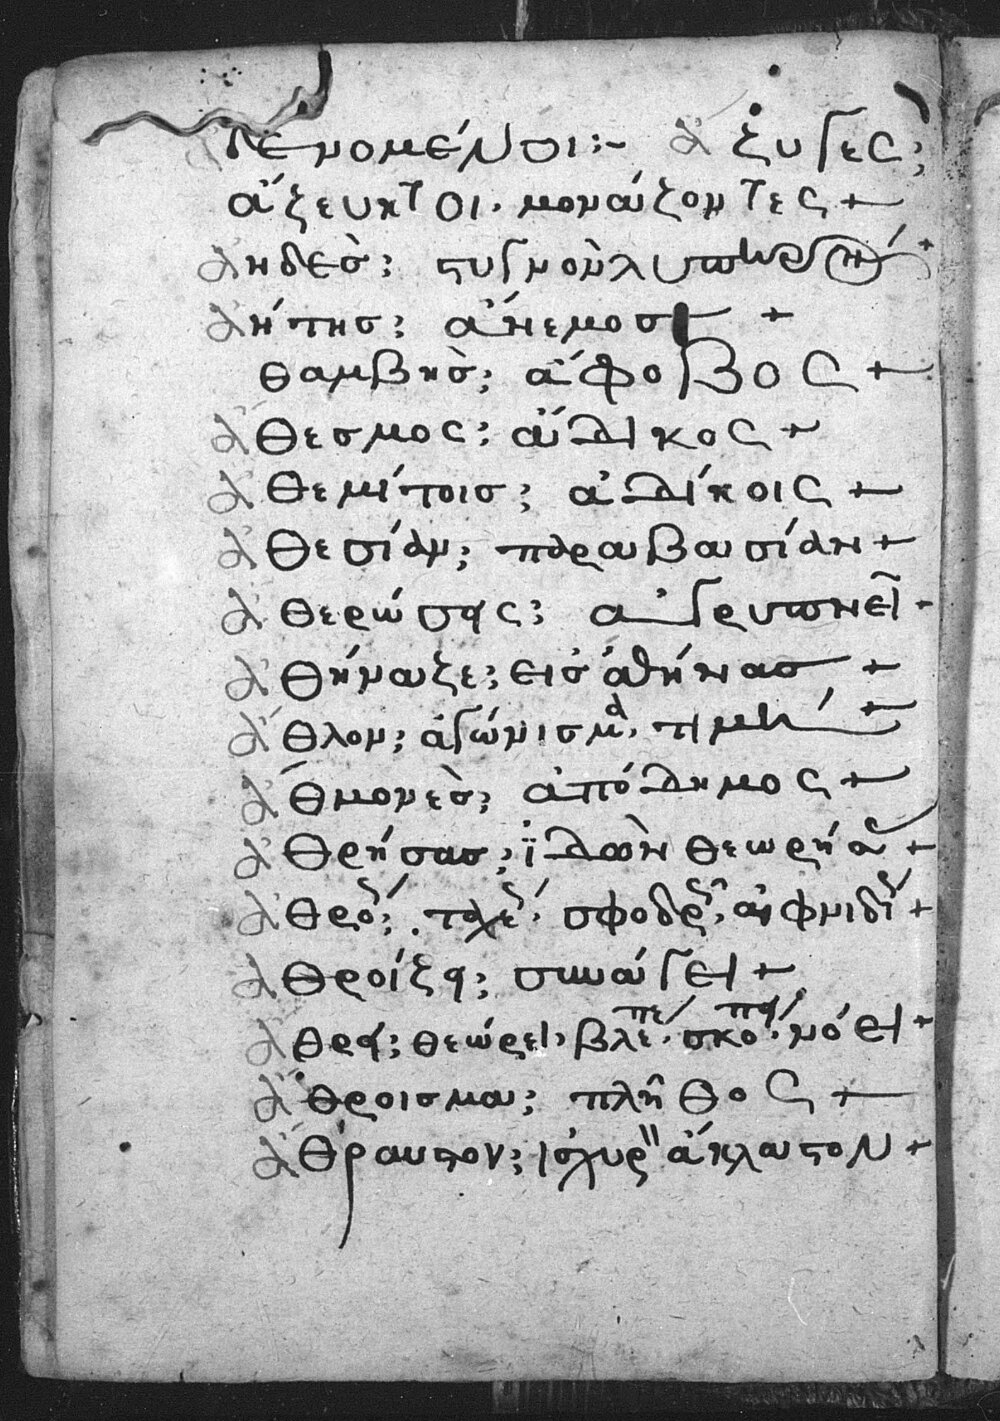 γενομένοι:~ ἄζυγες;
ἄζευκτοι. μονάζοντες +
ἀηδὲς; στυγνὸν λυπηρὸν +
ἀήτης; ἄνεμος +
θαμβὴς; ἄφοβος +
ἄθεσμος; ἄδικος +
ἀθεμίτοις; ἀδίκοις +
ἀθεσίαν; παραβασίαν +
ἀθερώσης; ἀγρυπνεῖ +
ἀθήναζε; εἰς ἀθήνας +
ἆθλον; ἀγώνισμα, τιμὴ +
ἀθμονὲς; ἀπόδημος +
ἀθρήσας; ἰδὼν θεωρήσας +
ἀθρό; ταχέ. σφοδρῶ, αἰφνίδι +
ἀθροίζει; συνάγει +
ἄθρει; θεώρει. βλέπε. σκόπει. νόει +
ἄθροισμα; πλῆθος +
ἄθραυστον; ἰσχυρ ἄκλαστον +